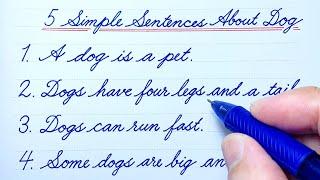 5 Simple Sentences About Dog
1. A dog is a pet.
2. Dogs have four legs and a tail
3. Dogs can run fast.
4. Some dogs are big an